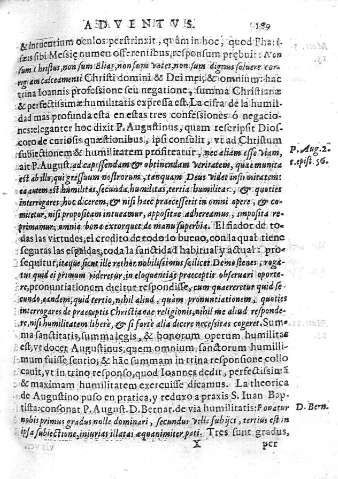 ADVENTVS. 189
& intuentium oculos perstrinxit, quàm in hoc, quod Pha-
sibi Messiæ nomen offerentibus, responsum prębuit: Non
sum Christus, non sum Elias, non sum vates, non sum dignus soluere cor-
rigiam calceamenti Christi domini & Dei mei; & omnium hæc
trina Ioannis professione seu negatione, summa Christianæ
& perfectissimæ humilitatis expressa est. La cifra de la humil-
dad mas profunda esta en estas tres confessiones ó negacio-
nes: eleganter hoc dixit P. Augustinus, quam rescripsit Dios-
coro de curiosis quæstionibus, ipsi consulit, vt ad Christum
subiectionem & humilitatem prosternatur, nec aliam esse viam,
ait P. August. ad capessendam & obtinendam veritatem, quàm munita
est ab illo, qui gressuum nostrorum, tanquam Deus videt infirmitatem:
ea autem est humilitas, secunda, humilitas, tertia humilitas: & quoties
interrogares hoc dicerem, & nisi hæc præcesserit in omni opere, & co-
mitetur, nisi proposita intueamur, apposita adhæreamus, imposita re-
primamur, omnia bona extorquet de manu superbia. El fiador de to-
das las virtudes, el credito de todo lo bueno, con la qual tiene
seguras las espaldas, toda la sanctidad habitual y actual: pro-
sequitur, itaque sicut ille rethor nobilissimus sollicet Demostenes, roga-
tus quid ei primum videretur, in eloquentiæ præceptis obseruari oporte-
re, pronuntiationem dicitur respondisse, cum quæreretur quid se-
cundo, eandem, quid tertio, nihil aliud, quàm pronuntiationem, quoties
interrogares de præceptis Christianæ religionis, nihil me aliud responde-
re, nisi humilitatem liberè, & si fortè alia dicere necessitas cogeret. Sum-
ma sanctitatis, summa legis, & bonorum operum humilitas
est, vt docet Augustinus, quem omnium sanctorum humilli-
mum fuisse sentio; & hæc summam in trina responsione collo-
cauit, vt in trino responso, quod Ioannes dedit, perfectissimã
& maximam humilitatem exercuisse dicamus. La theorica
de Augustino puso en pratica, y reduxo a praxis S. Iuan Bap-
tista: consonat P. August. D. Bernar. de via humilitatis: Ponatur
nobis primus gradus nolle dominari, secundus velle subijci, tertius est in
ipsa subiectione, iniurias illatas æquanimiter pati. Tres sunt gradus,
X per
P. Aug. 2.
t. epist. 56.
D. Bern.